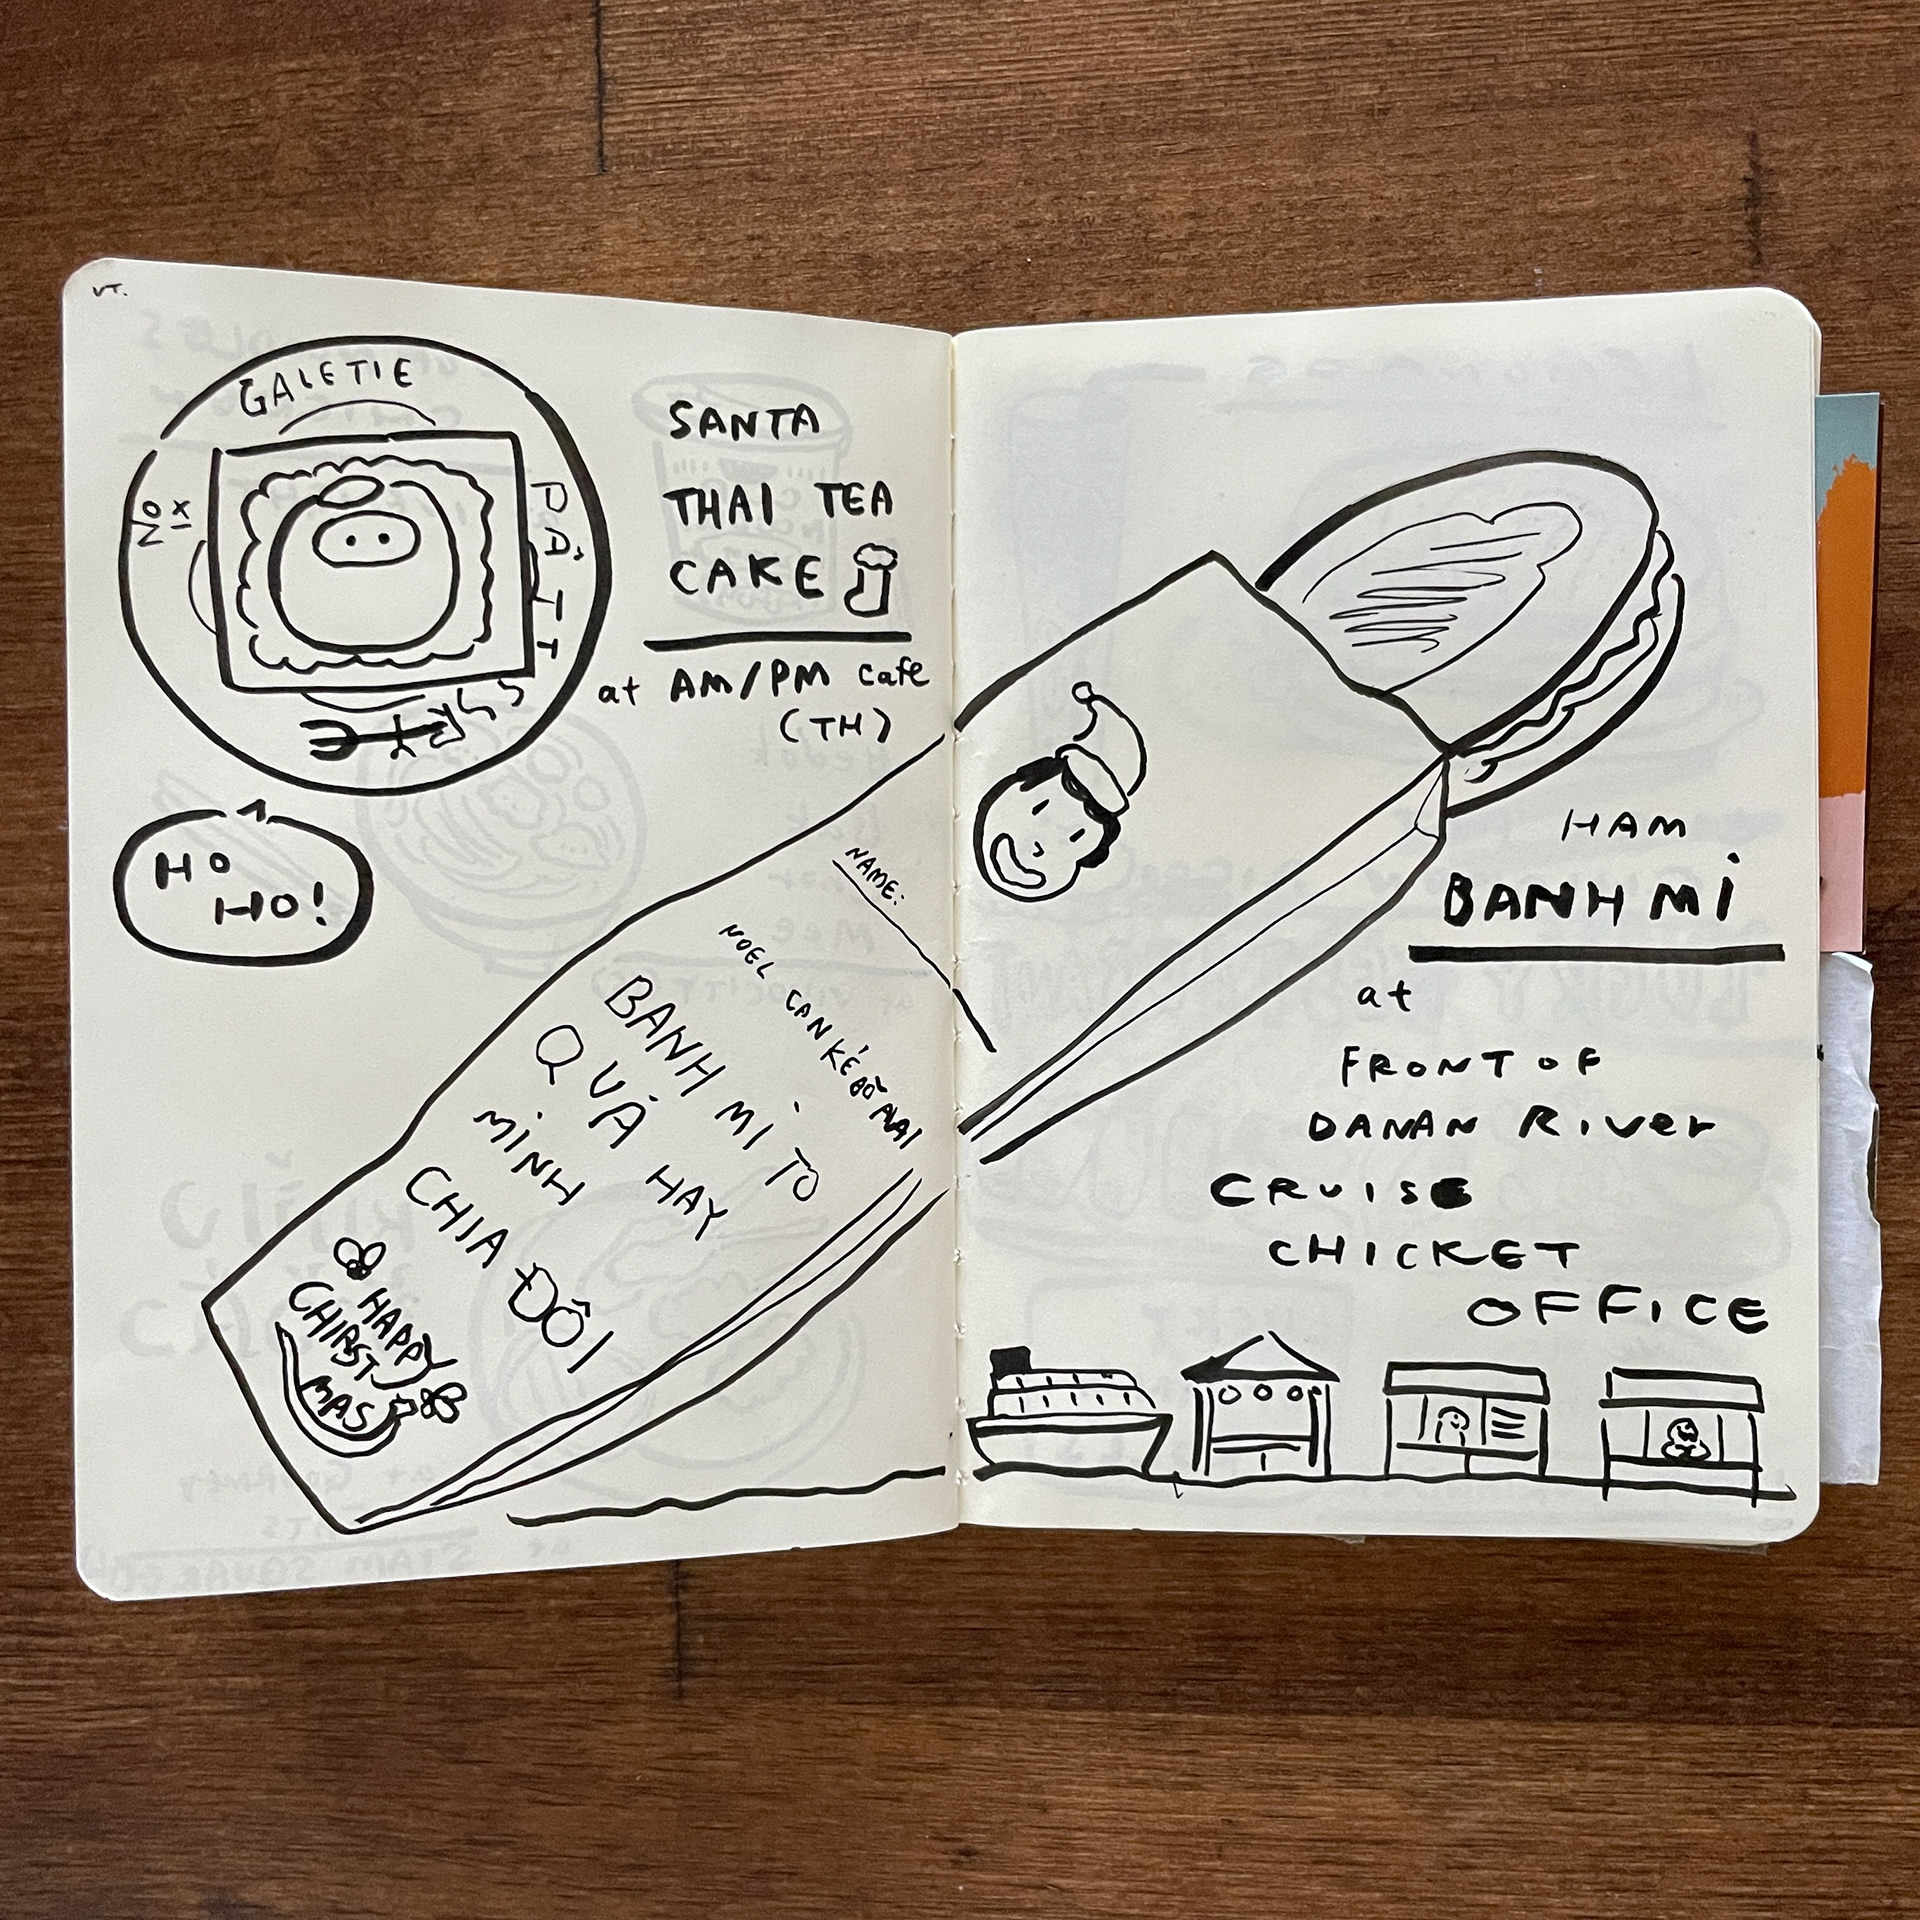 VT.
GALETIE
NOIX
PÂTI
SANTA
THAI TEA
CAKE
at AM/PM cafe
(TH)
HO
HO!
NAME:
NOEL CAN KẾ
BANH MÌ TO
QUÀ HAY
MÌNH
CHIA ĐÔI
HAPPY
CHIRST
MAS
HAM
BANH MÌ
at
FRONT OF
DANAN RIVer
CRUISE
CHICKET
OFFICE